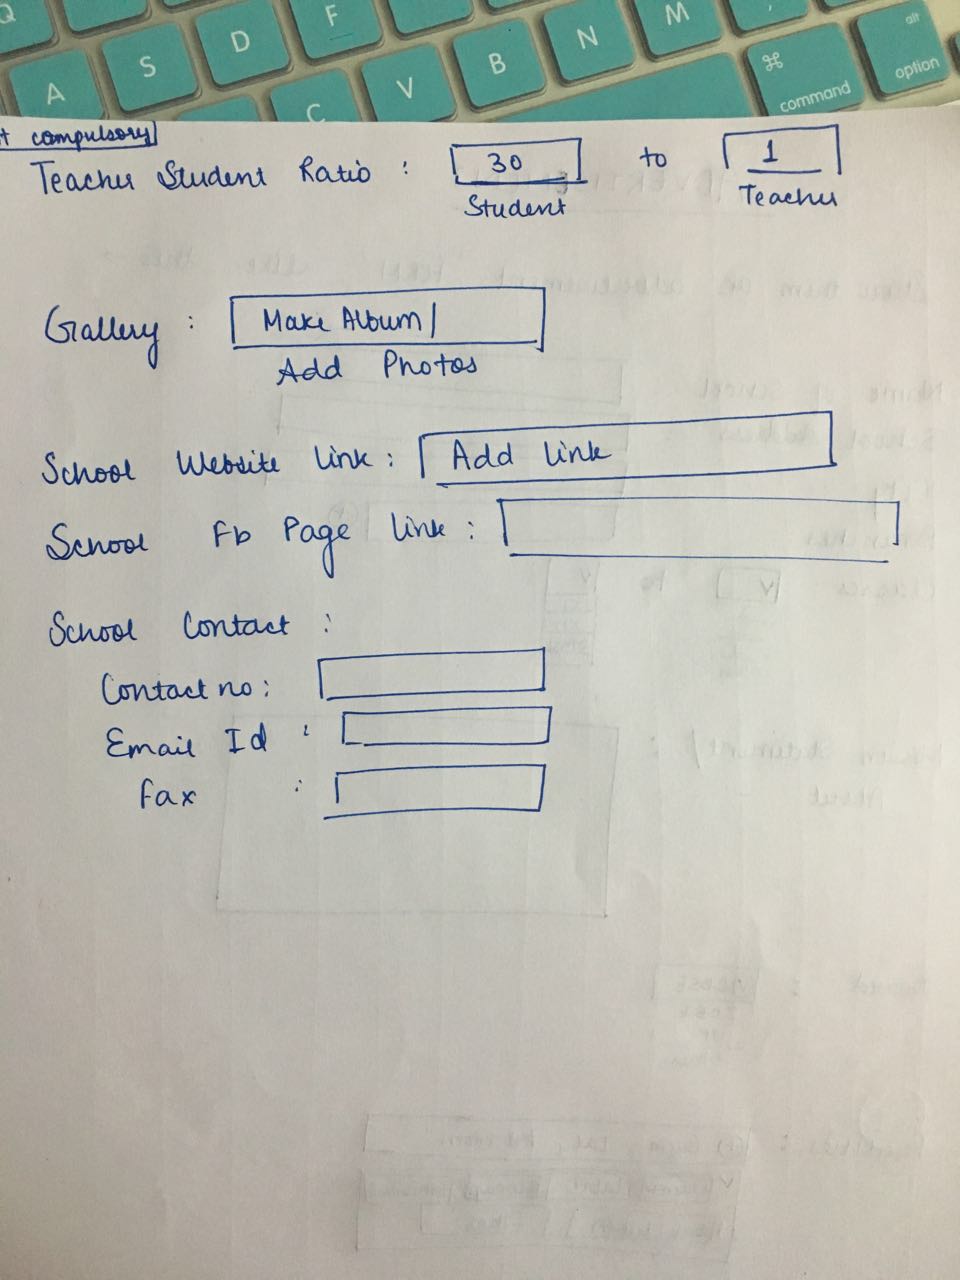 Q
F
A S D
C V B N M ,
⌘ command
alt option
compulsory
Teacher Student Ratio : 30 to 1
Student Teacher
Gallery : Make Album /
Add Photos
School Website link : Add link
School Fb Page link :
School Contact :
Contact no :
Email Id :
Fax :